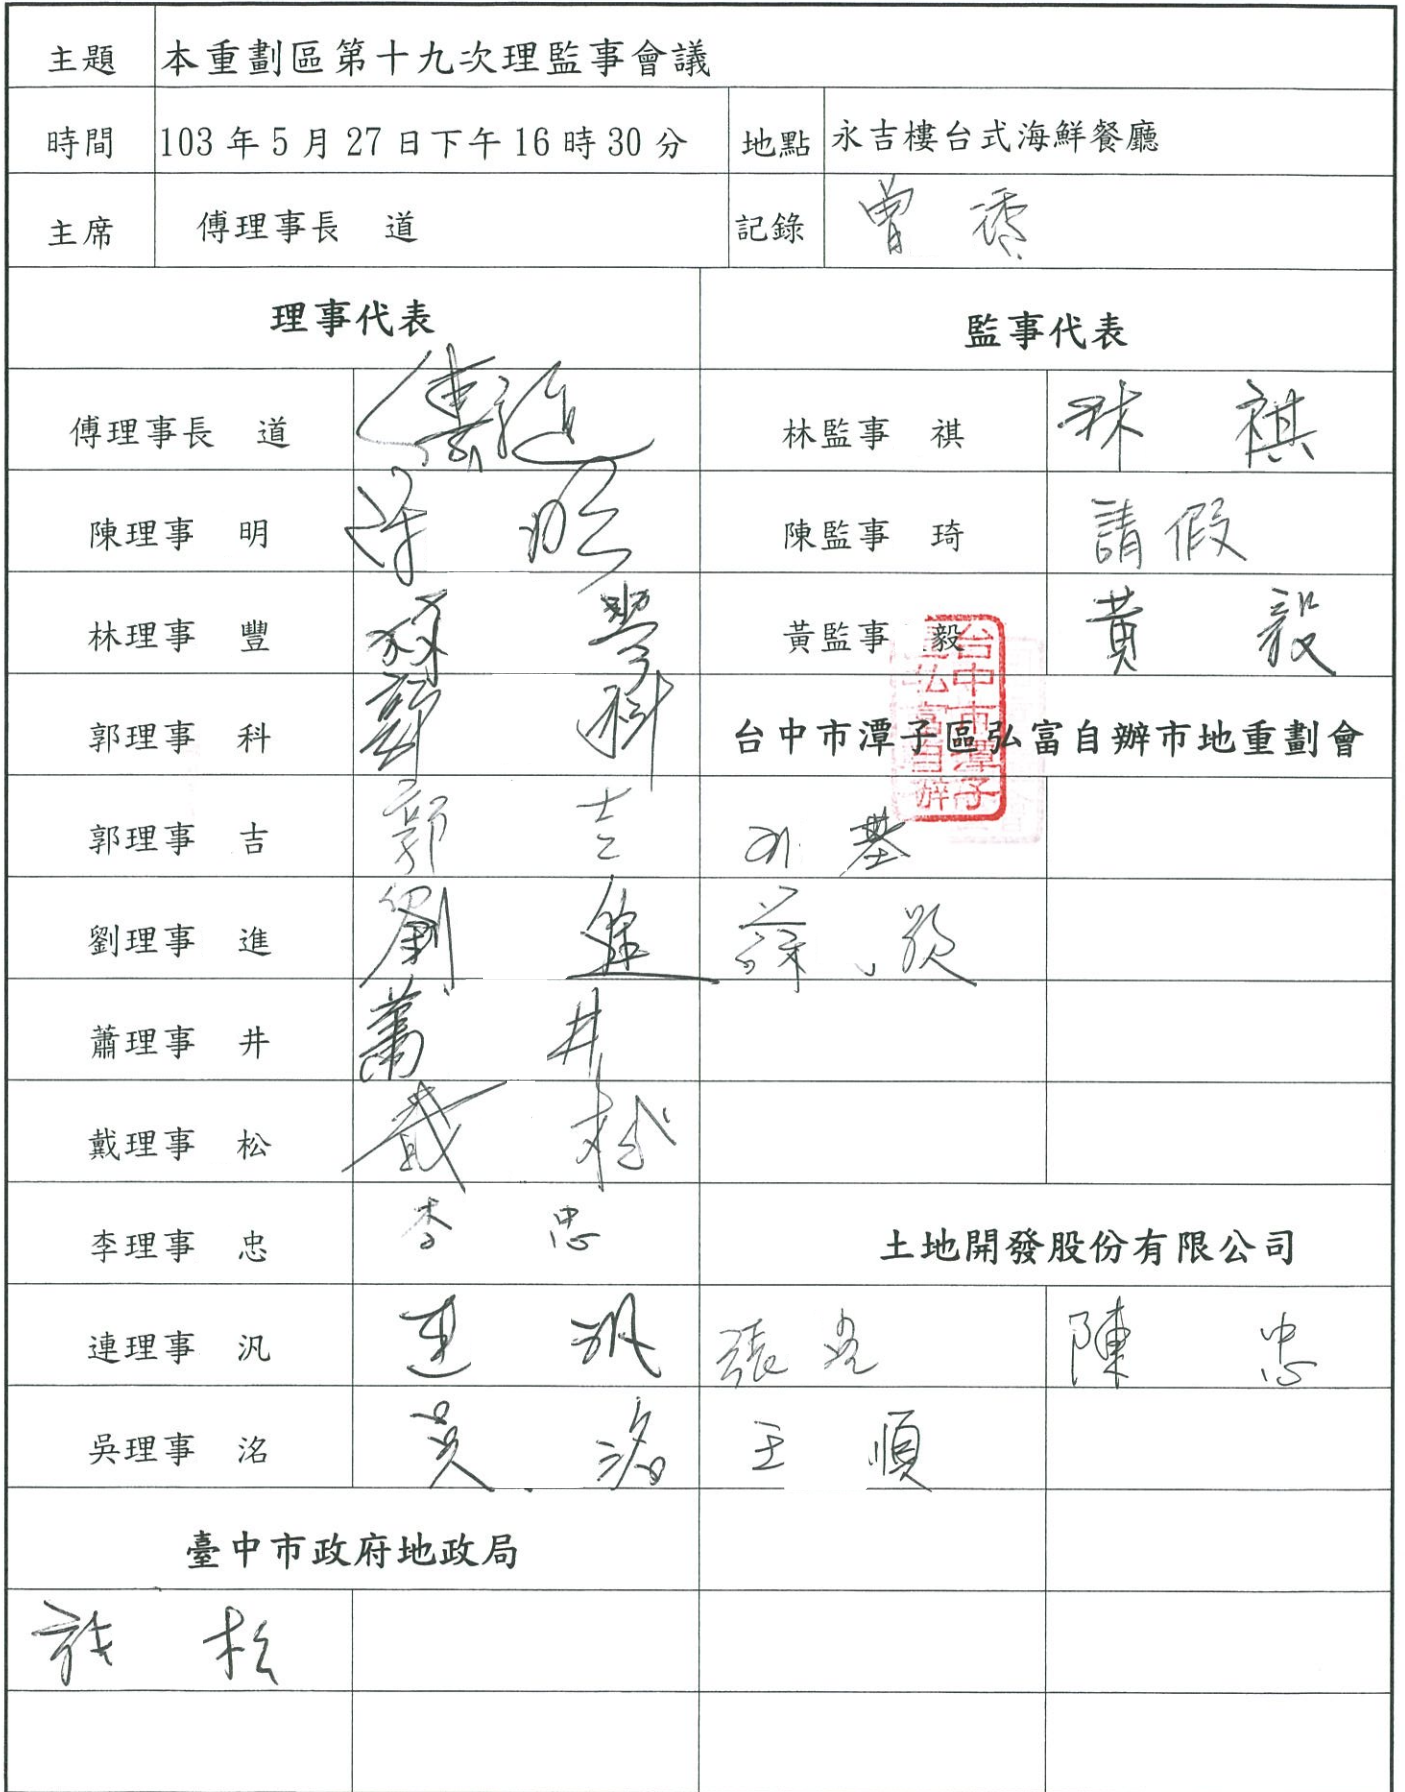 主題 本重劃區第十九次理監事會議
時間 103年5月27日下午16時30分 地點 永吉樓台式海鮮餐廳
主席 傅理事長 道 記錄 曾
理事代表 監事代表
傅理事長 道 傅道 林監事 祺 林 祺
陳理事 明 陳監事 琦 請假
林理事 豐 林 黃監事 毅 黃 毅
郭理事 科 郭 科 台中市潭子區弘富自辦市地重劃會
台中市潭子
區弘富自辦
郭理事 吉 郭 吉 基
劉理事 進 劉 進 薛
蕭理事 井 蕭 井
戴理事 松 戴 松
李理事 忠 李 忠 土地開發股份有限公司
連理事 汎 連 汎 張 陳 忠
吳理事 洺 吳 洺 王 順
臺中市政府地政局
松